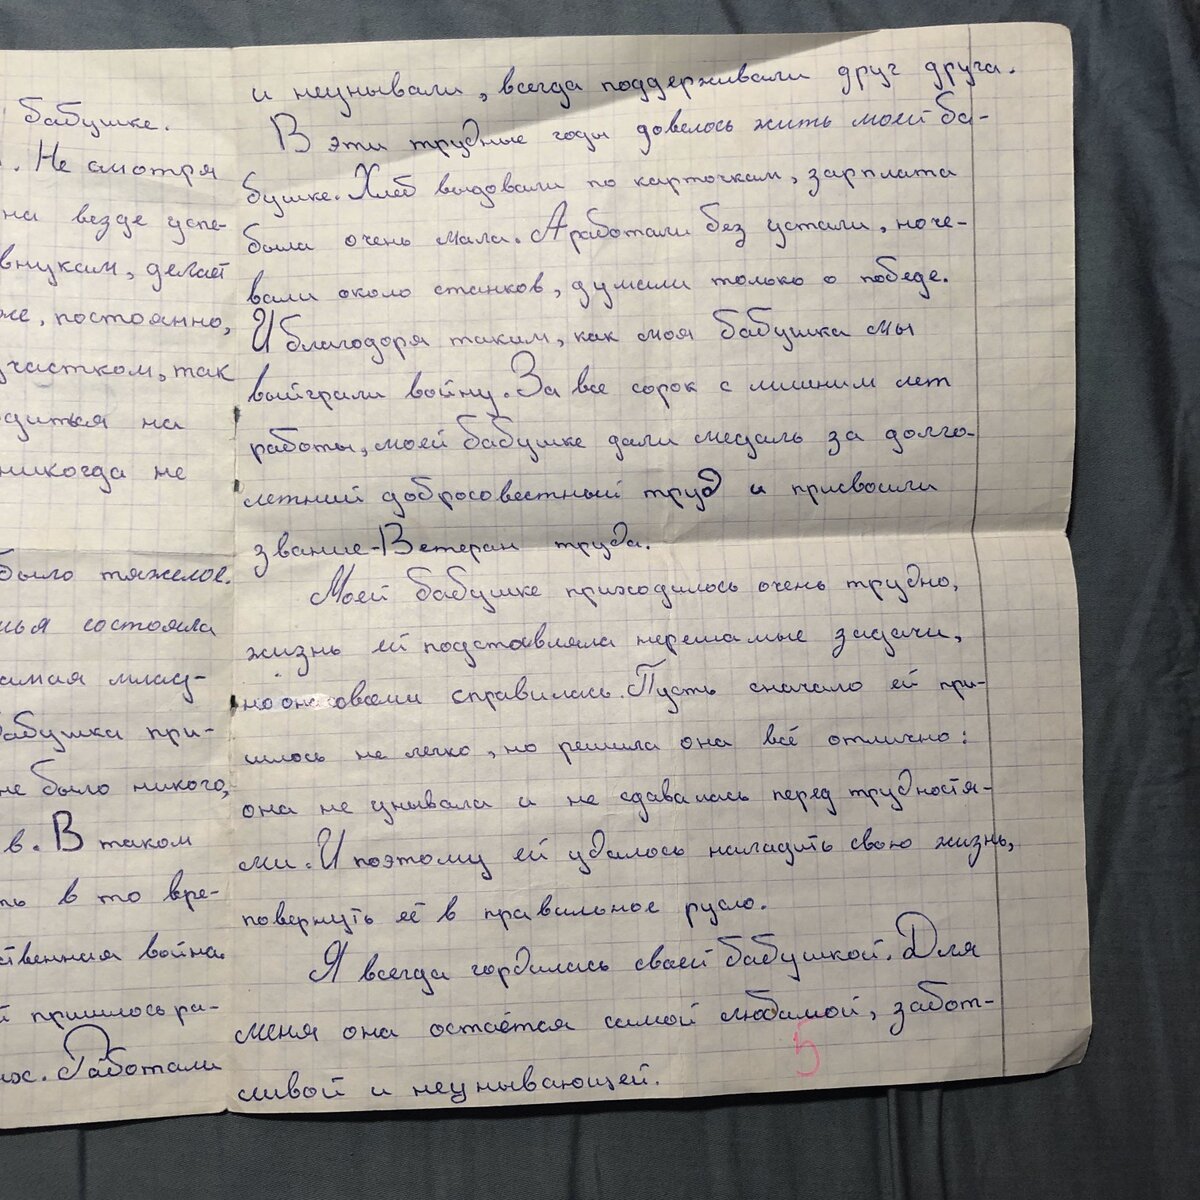 бабушке.
. Не смотря
на везде успе-
внукам, делает
же, постоянно,
участком, так
диться на
никогда не
было тяжелое.
мья состояла
самая млад-
бабушка при-
не было никого,
в. В таком
ть в то вре-
ственная война.
й пришлось ра-
их. Работали
и неунывали, всегда поддерживали друг друга.
В эти трудные годы довелось жить моей ба-
бушке. Хлеб выдовали по карточкам, зарплата
была очень мала. А работали без устали, ноче-
вали около станков, думали только о победе.
И благодоря таким, как моя бабушка мы
выйграли войну. За все сорок с лишним лет
работы, моей бабушке дали медаль за долго-
летний добросовестный труд и присвоили
звание-Ветеран труда.
Моей бабушке приходилось очень трудно,
жизнь ей подставляла нерешамые задачи,
но она с овсеми справилась. Пусть сначало ей при-
шлось не легко, но решила она всё отлично:
она не унывала и не сдавалась перед трудностя-
ми. И поэтому ей удалось наладить свою жизнь,
повернуть её в правильное русло.
Я всегда гордилась своей бабушкой. Для
меня она остаётся самой любимой, забот-
ливой и неунывающей.
5